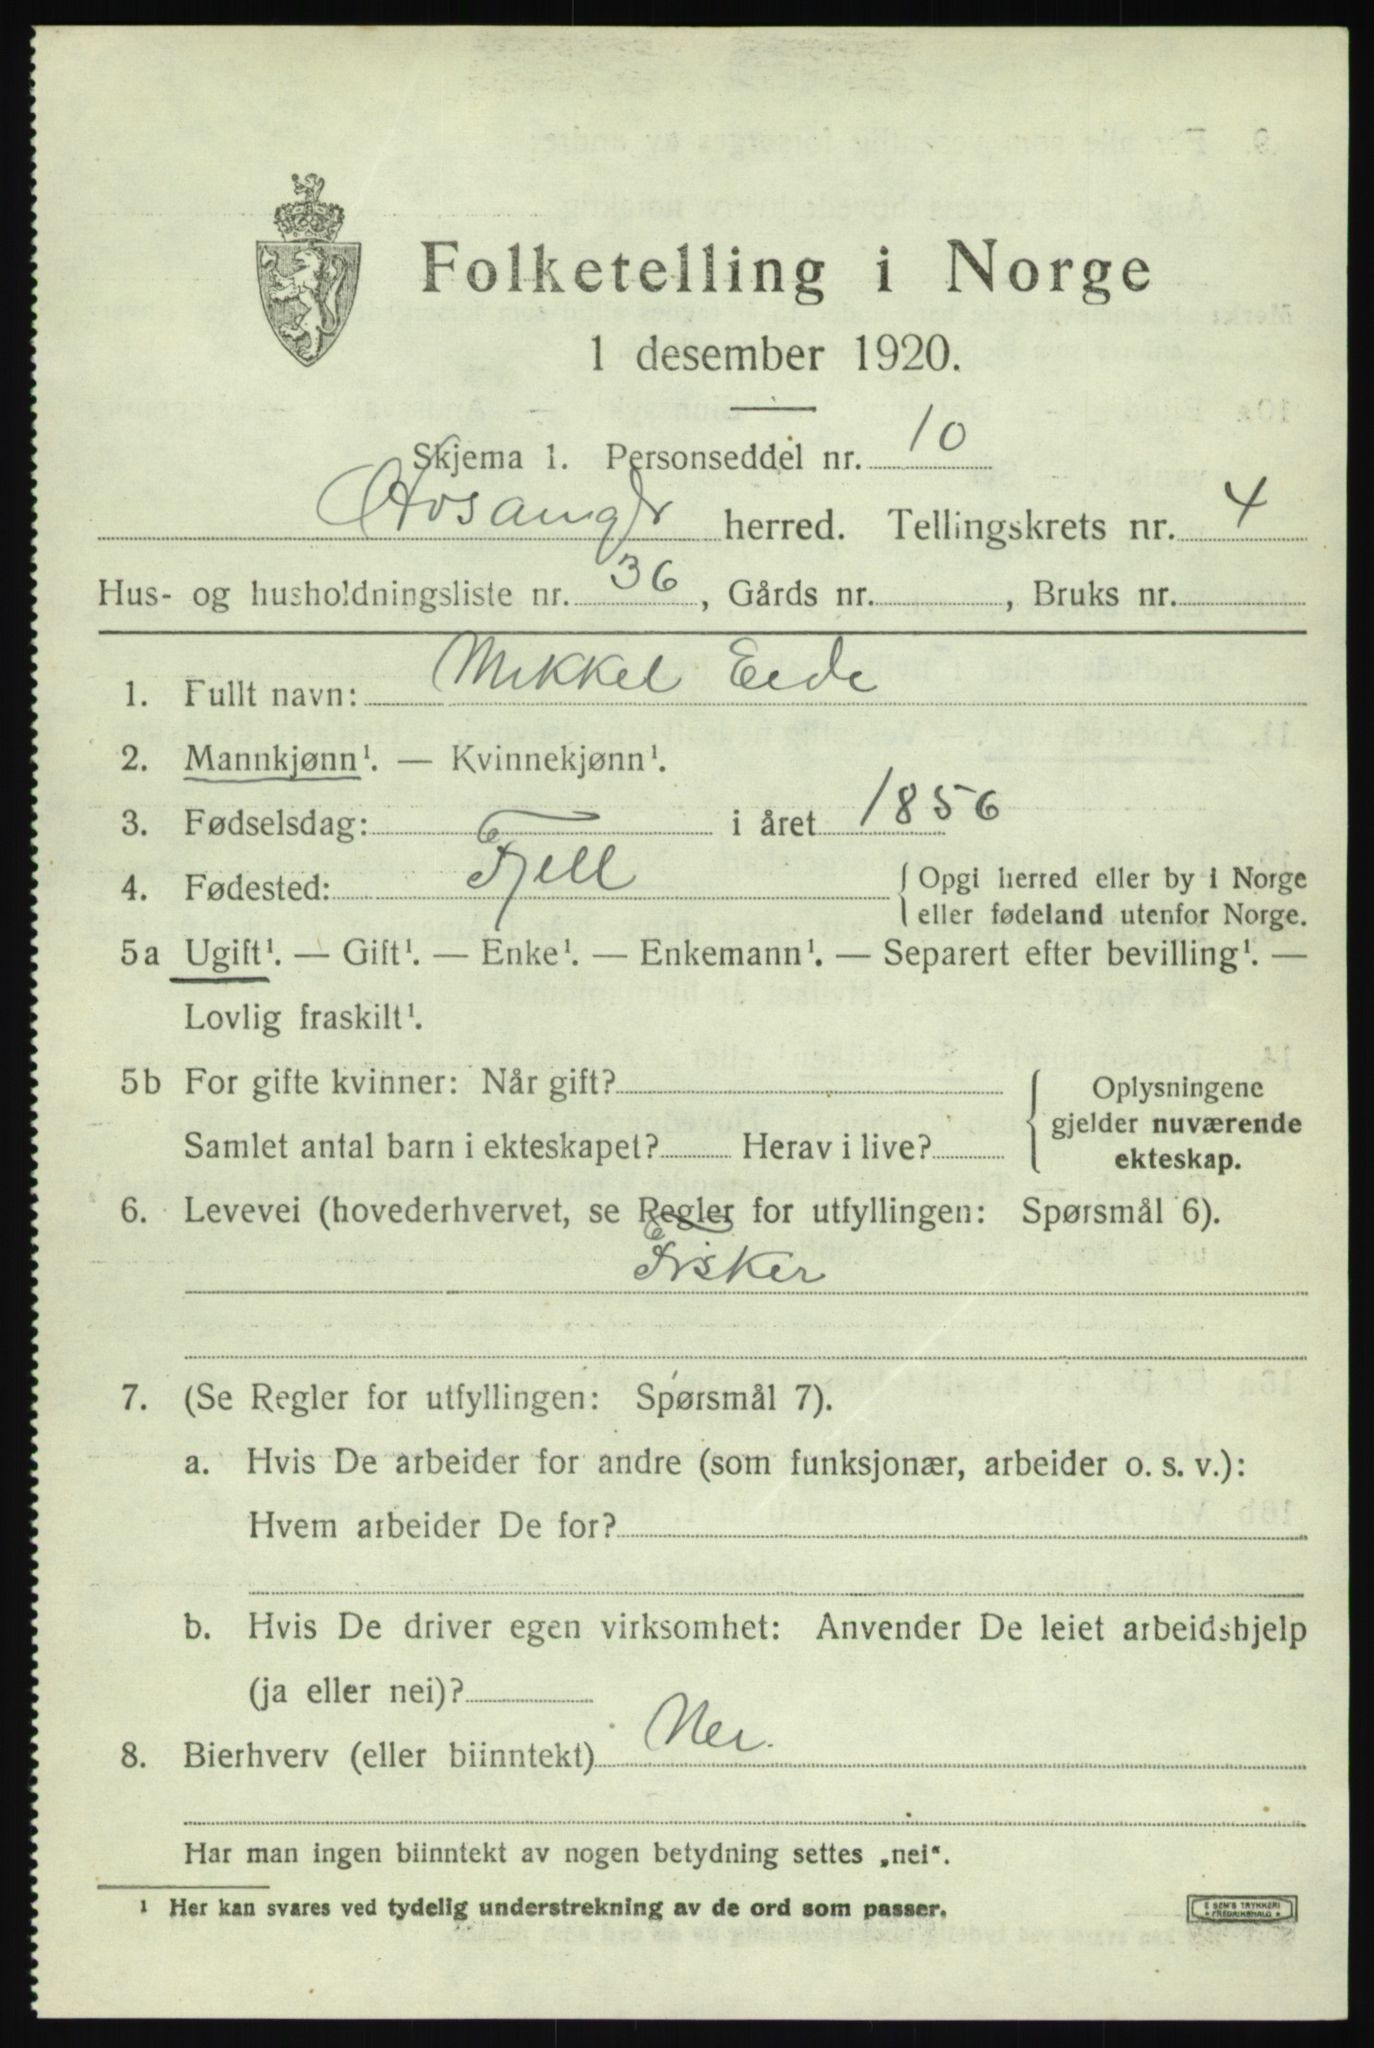 Folketelling i Norge
1 desember 1920.
Skjema 1. Personseddel nr. 10
Hosangr herred. Tellingskrets nr. 4
Hus- og husholdningsliste nr. 36, Gårds nr. , Bruks nr.
1. Fullt navn: Mikkel Eide
2. Mannkjønn¹. — Kvinnekjønn¹.
3. Fødselsdag: i året 1856
4. Fødested: Fjell { Opgi herred eller by i Norge
eller fødeland utenfor Norge.
5a Ugift¹. — Gift¹. — Enke¹. — Enkemann¹. — Separert efter bevilling¹. —
Lovlig fraskilt¹.
5b For gifte kvinner: Når gift?
Samlet antal barn i ekteskapet? Herav i live?
Oplysningene
gjelder nuværende
ekteskap.
6. Levevei (hovederhvervet, se Regler for utfyllingen: Spørsmål 6).
Fisker
7. (Se Regler for utfyllingen: Spørsmål 7).
a. Hvis De arbeider for andre (som funksjonær, arbeider o. s. v.):
Hvem arbeider De for?
b. Hvis De driver egen virksomhet: Anvender De leiet arbeidshjelp
(ja eller nei)?
8. Bierhverv (eller biinntekt) Nei.
Har man ingen biinntekt av nogen betydning settes „nei“.
¹ Her kan svares ved tydelig understrekning av de ord som passer.
E SEM'S TRYKKERI
FREDRIKSHALD